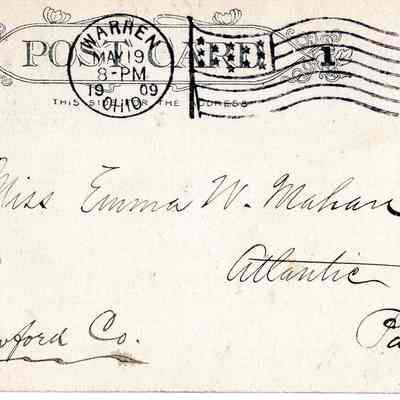 POST CARD
WARREN
MAY 19
8-PM
1909
OHIO
1
THIS SIDE FOR THE ADDRESS
Miss Emma W. Mahan
Atlantic
wford Co.
Pa